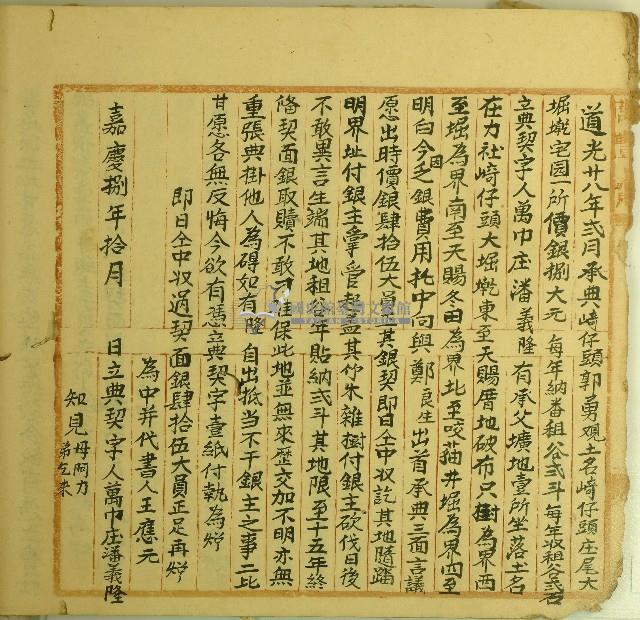 道光廿八年弍月承典崎仔頭郭勇覌土名崎仔頭庄尾大
堀墘宅园一所價銀捌大元 每年納番租谷弍斗每年收租谷弍石
立典契字人萬巾庄潘義隆 有承父壙地壹所坐落土名
在力社崎仔頭大堀墘東至天賜厝地破布只樹為界西
至堀為界南至天賜冬田為界北至咬猫井堀為界四至
明白今因乏銀費用托中向與鄭良生出首承典三面言議
愿出時價銀肆拾伍大員 其銀契即日仝中收訖其地隨踏
明界址付銀主掌管 其竹木雜樹付銀主砍伐日後
不敢異言生端其地租谷年貼納弍斗其地限至十五年終
俻契面銀取贖不敢刁 保此地並無來歷交加不明亦無
重張典掛他人為碍如有 隆自出抵当不干銀主之事二比
甘愿各無反悔今欲有憑立典契字壹紙付執為炤
即日仝中收過契面銀肆拾伍大員正足再炤
為中并代書人王應元
知見 母阿力
弟乞來
嘉慶捌年拾月 日立典契字人萬巾庄潘義隆